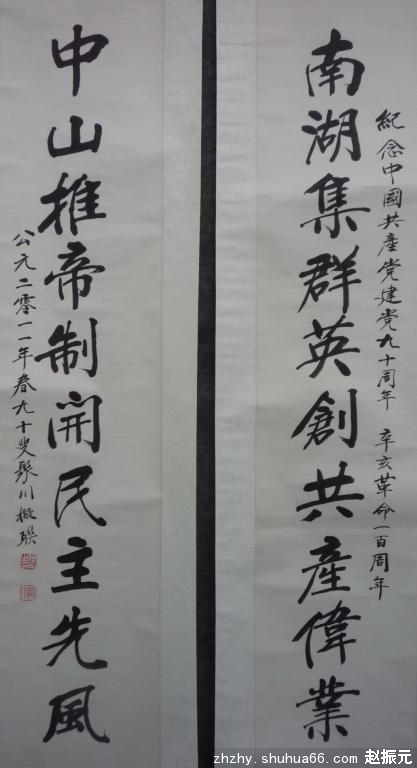 紀念中國共產党建党九十周年 辛亥革命一百周年
南湖集群英創共產偉業
中山推帝制開民主先風
公元二零一一年春九十叟聚川撰联
zhzhy.shuhua66.com 赵振元